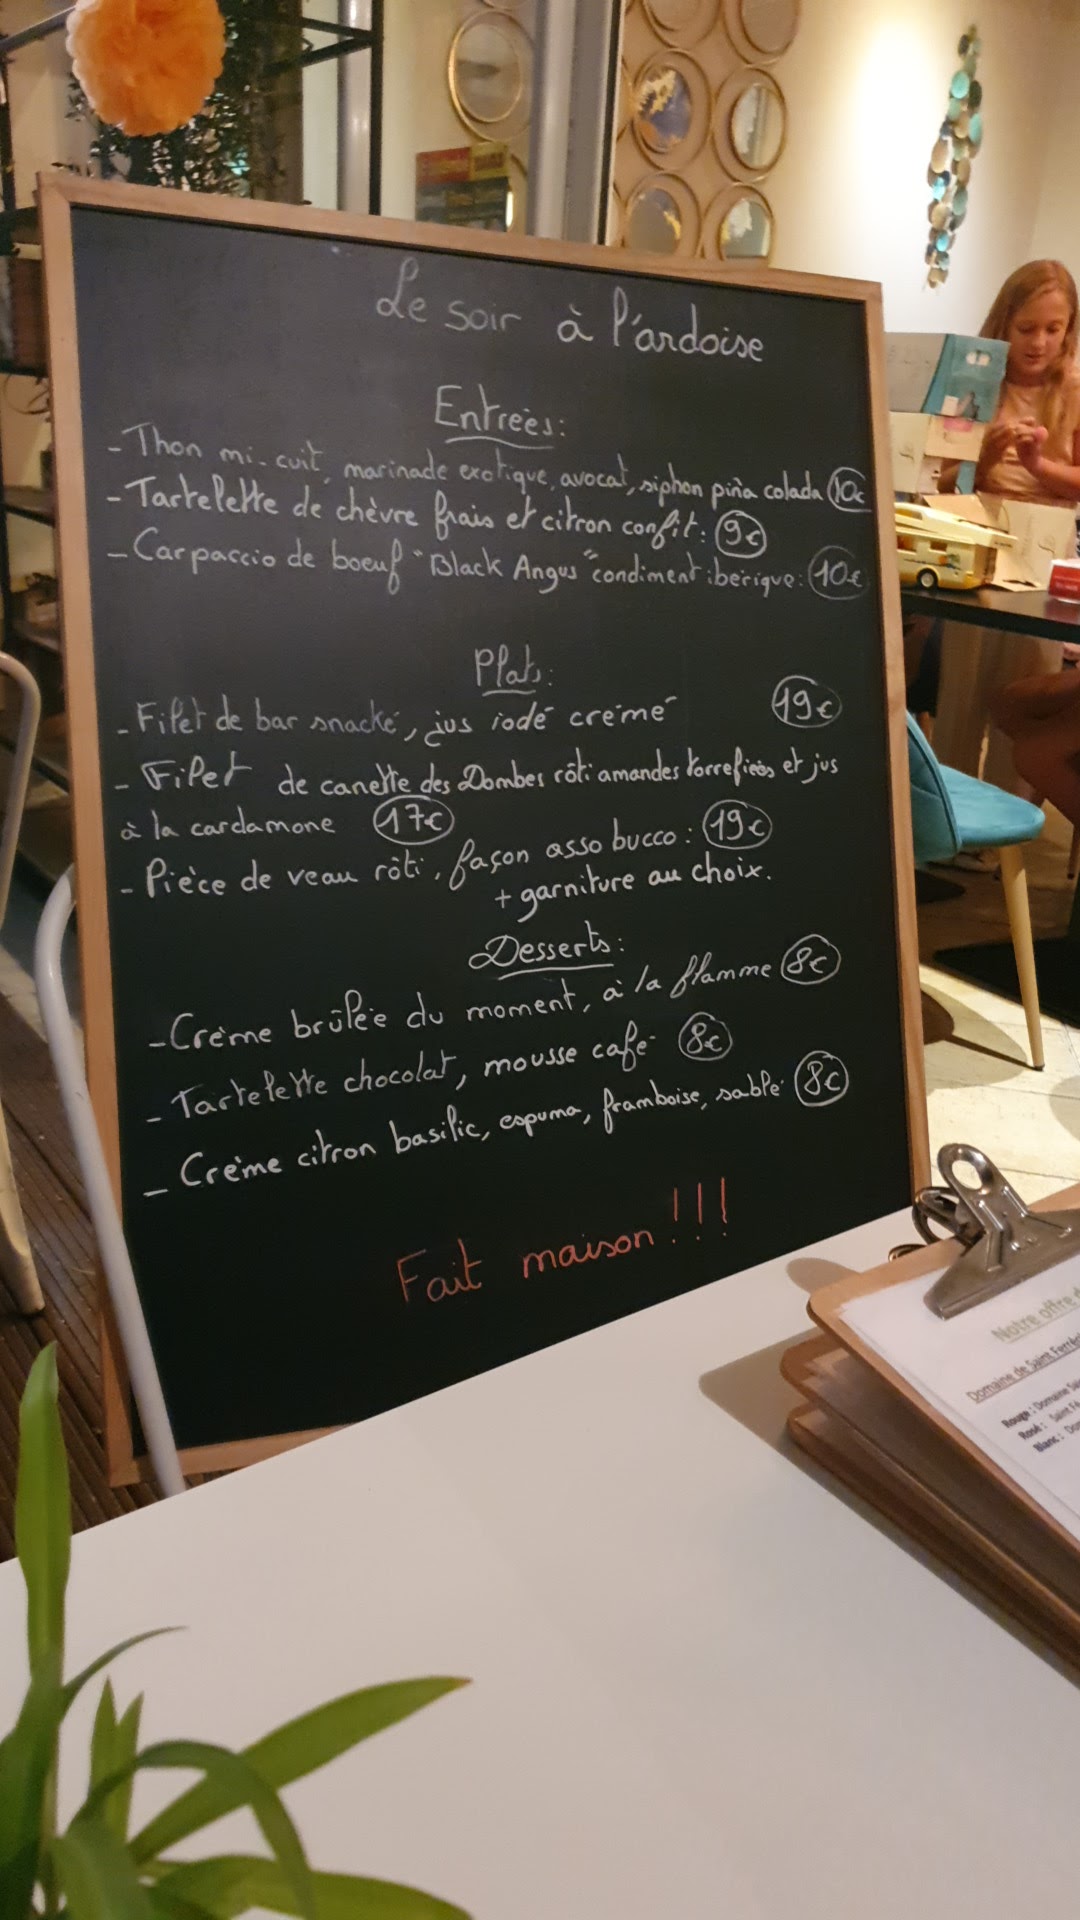 Le soir à l'ardoise
Entrées:
- Thon mi-cuit, marinade exotique, avocat, siphon piña colada 10€
- Tartelette de chèvre frais et citron confit: 9€
- Carpaccio de boeuf "Black Angus" condiment ibérique: 10€
Plats:
- Filet de bar snacké, jus iodé crémé 19€
- Filet de canette des Dombes rôti amandes torrefiées et jus
à la cardamone 17€
- Pièce de veau rôti, façon asso bucco: 19€
+ garniture au choix.
Desserts:
- Crème brûlée du moment, à la flamme 8€
- Tartelette chocolat, mousse café 8€
- Crème citron basilic, espuma, framboise, sablé 8€
Fait maison!!!
Notre offre d
Domaine de Saint Ferré
Rouge: Domaine Sa
Rosé: Saint Fé
Blanc: Do